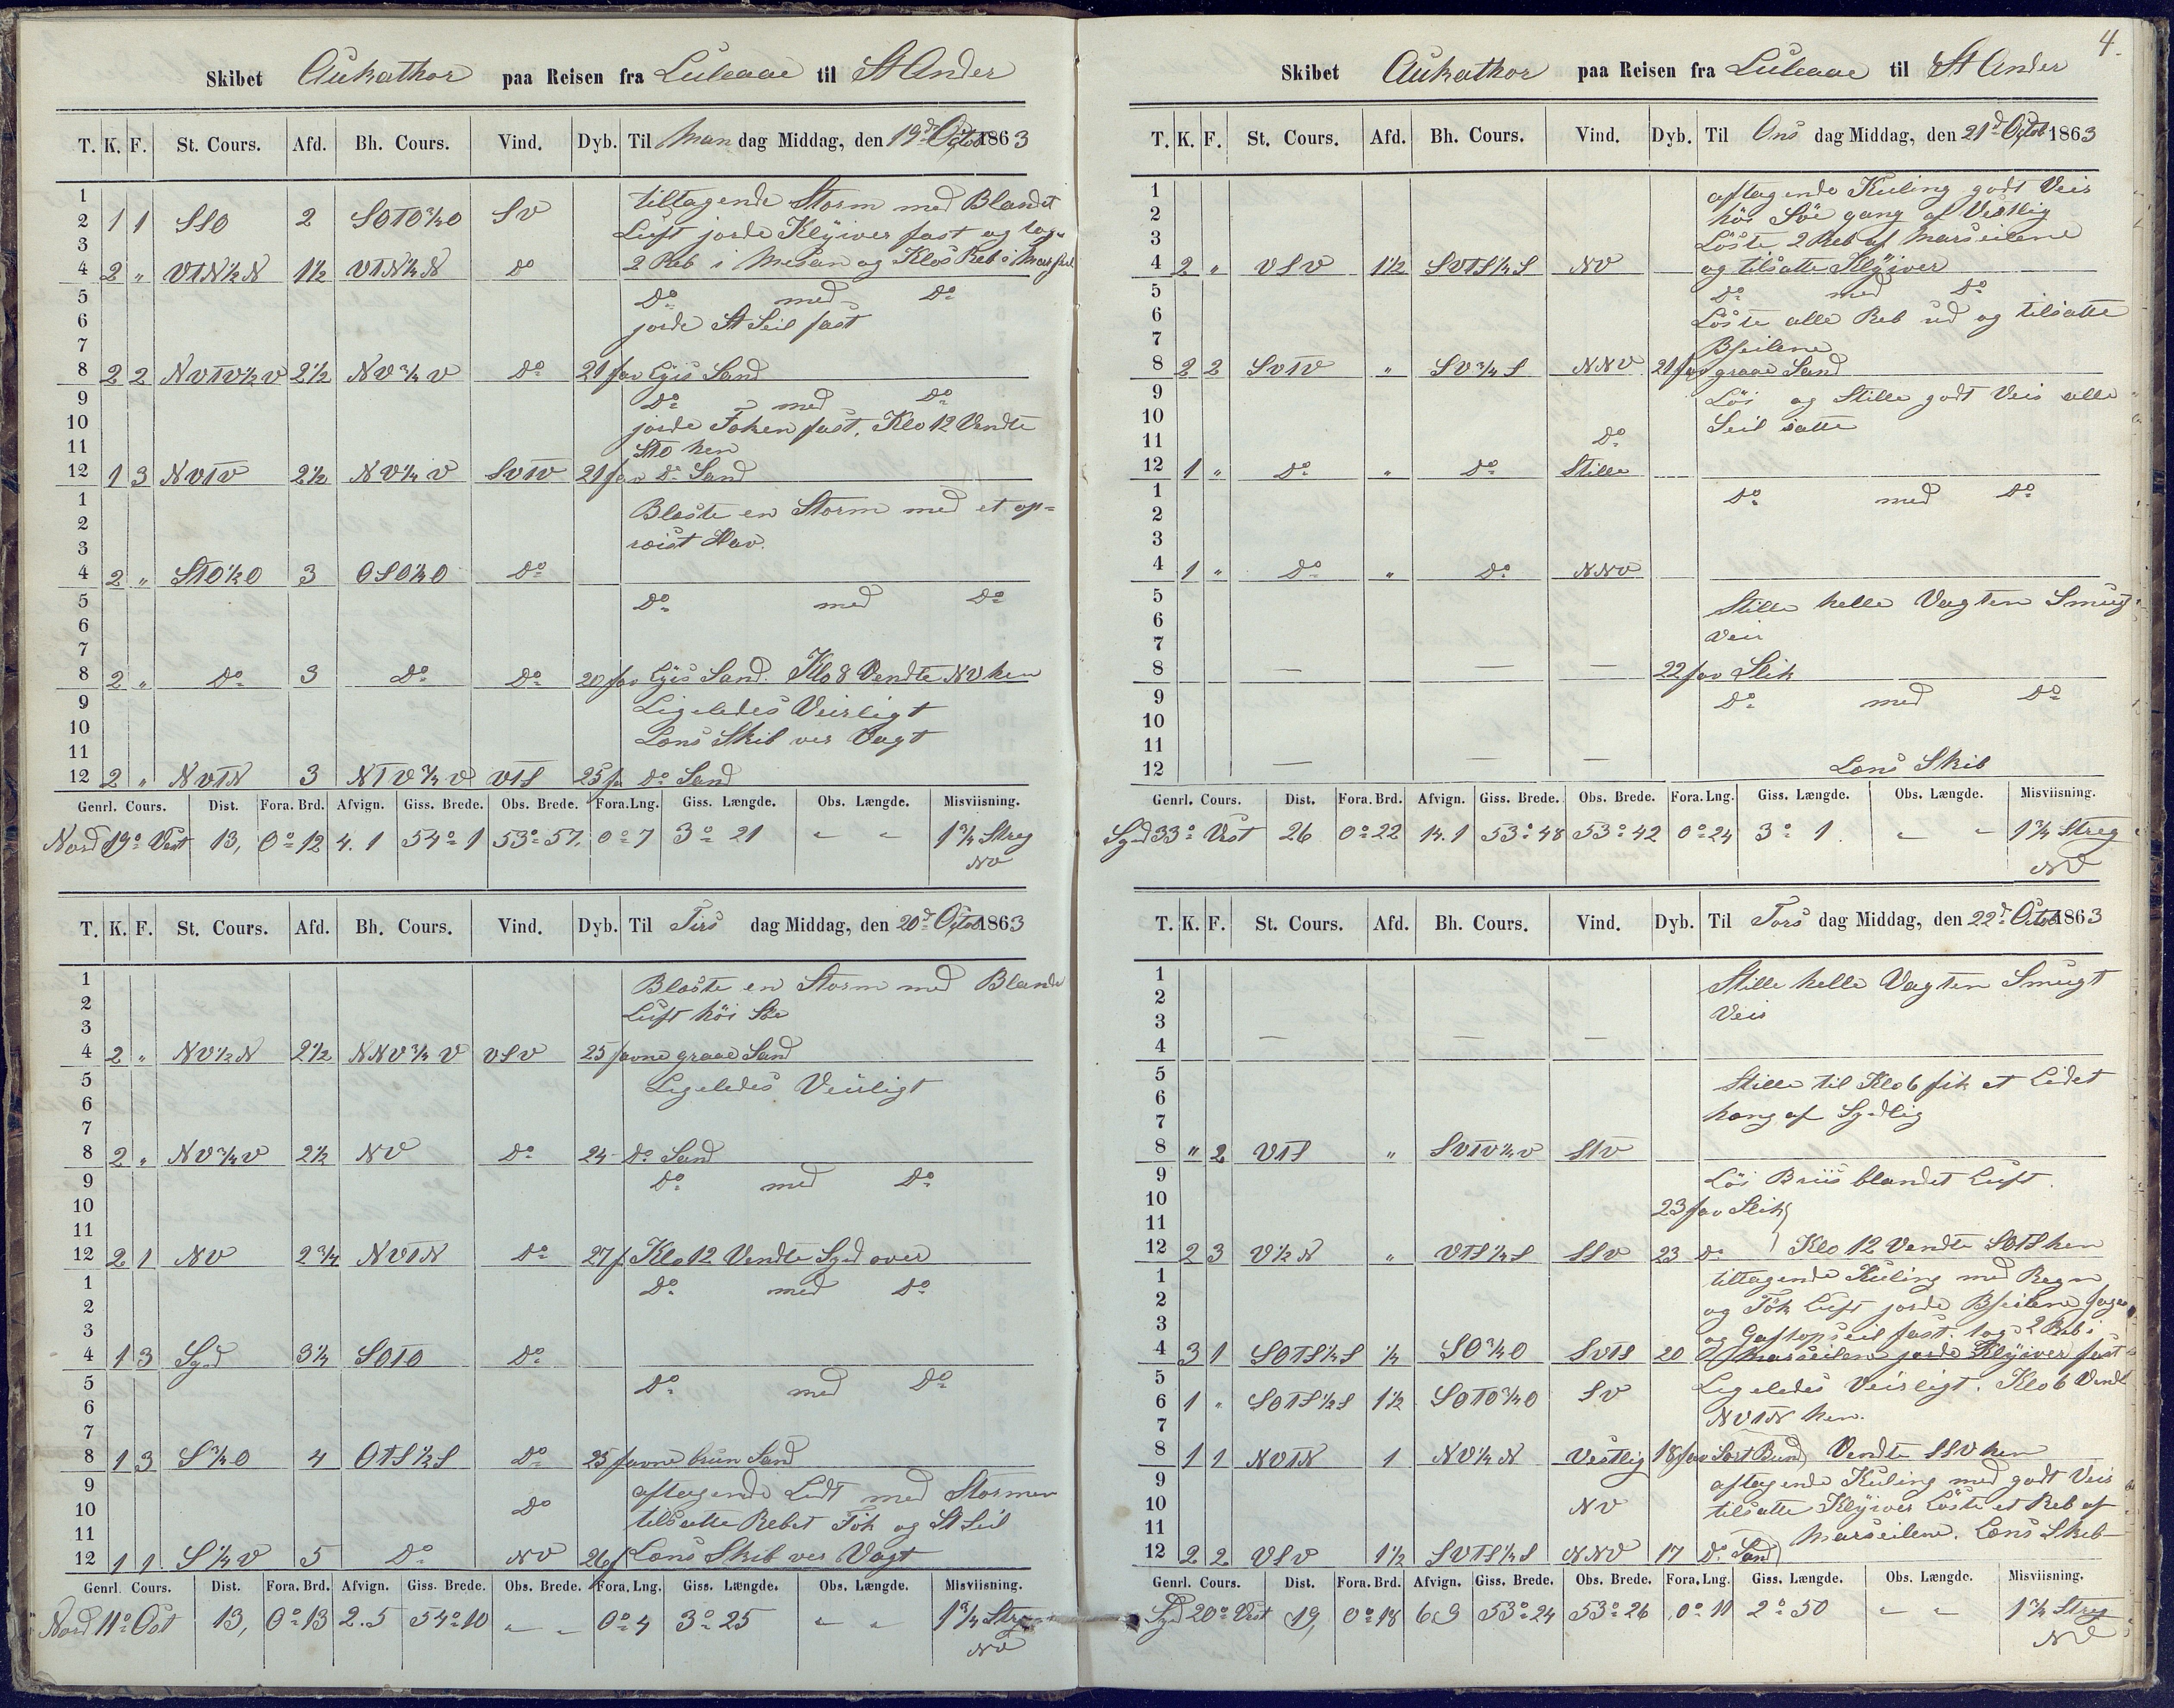 Skibet Aukathor paa Reisen fra Luleaae til St Ander
T. K. F. St. Cours. Afd. Bh. Cours. Vind. Dyb. Til Man dag Middag, den 19d Octob 1863
1 tiltagende Storm med Blandet
2 1 1 SSO 2 SOTO¾O SV Luft jorde Klÿver fast og tog
3
4 2 " VTN½N 1½ VTN¼N Do 2 Reb i Mesan og Klos Reb i
5 Do med Do
6 jorde St Seil fast
7
8 2 2 NVTV½V 2½ NV¾V Do 21 fav Lÿs Sand
9 Do med Do
10 jorde Foken fast, Klo 12 Vendte
11 STO hen
12 1 3 NVTV 2½ NV¼V SVTV 21 fav Do Sand
1 Blæste en Storm med et op=
2
3 røist Hav.
4 2 " STO½O 3 OSO½O Do
5 Do med Do
6
7
8 2 " Do 3 Do Do 20 fav Lÿs Sand. Klo 8 Vendte NV hen
9 Ligeledes Veirligt
10
11 Læns Skib ver Vagt
12 2 " NVTN 3 NTV¾V VTS 25 fv Do Sand
Genrl. Cours. Dist. Fora. Brd. Afvign. Giss. Brede. Obs. Brede. Fora.Lng. Giss. Længde. Obs. Længde. Misviisning.
Nord 19o Vest 13, 0o 12 4.1 54o 1 53o 57, 0o 7 3o 21 " " 1¾ Streg
NV
T. K. F. St. Cours. Afd. Bh. Cours. Vind. Dyb. Til Tirs dag Middag, den 20d Octob 1863
1 Blæste en Storm med Blande
2 Luft höi Söe
3
4 2 " NV½N 2½ NNV¾V VSV 25 favne graae Sand
5 Ligeledes Veirligt
6
7
8 2 " NV¾V 2½ NV Do 24 Do Sand
9 Do med Do
10
11
12 2 1 NV 2¾ NVTN Do 27 f Klo 12 Vendte Syd over
1 Do med Do
2
3
4 1 3 Syd 3¼ SOTO Do
5 Do med Do
6
7
8 1 3 S¾O 4 OTS½S Do 25 favne brun Sand
9 aftagende Lidt med Stormen
10 Do tilsatte Rebet Fök og St Seil
11
12 1 1 S¼V 5 Do NV 26 f Læns Skib ver Vagt
Genrl. Cours. Dist. Fora. Brd. Afvign. Giss. Brede. Obs. Brede. Fora. Lng. Giss. Længde. Obs. Længde. Misviisning.
Nord 11o Ost 13, 0o 13 2.5 54o 10 " " 0o 4 3o 25 " " 1¾ Streg
NV
4.
Skibet Aukathor paa Reisen fra Luleaae til St Ander
T. K. F. St. Cours. Afd. Bh. Cours. Vind. Dyb. Til Ons dag Middag, den 21d Octob 1863
1 aftagende Kuling godt Veir
2 höi Söe gang af Vestlig
3 Löste 2 Reb af Marseilene
4 2 " VSV 1½ SVTS¼S NV og tilsatte Klÿver
5 Do med Do
6 Löste alle Reb ud og tilsatte
7 Bseilene
8 2 2 SVTV " SV¾S NNV 21 fav graae Sand
9 Löi og Stille godt Veir alle
10 Seil satte
11 Do
12 1 " Do " Do Stille
1 Do med Do
2
3
4 1 " Do " Do NNV
5 Stille helle Vagten Smugt
6 Veir
7
8 — — — 22 fav Slik
9 Do med Do
10
11
12 — — — Læns Skib
Genrl. Cours. Dist. Fora. Brd. Afvign. Giss. Brede. Obs. Brede. Fora. Lng. Giss. Længde. Obs. Længde. Misviisning.
Syd 33o Vest 26 0o 22 14.1 53o 48 53o 42 0o 24 3o 1 " " 1¾ Streg
NV
T. K. F. St. Cours. Afd. Bh. Cours. Vind. Dyb. Til Tors dag Middag, den 22d Octob 1863
1 Stille helle Vagten Smugt
2 Veir
3 — — —
4
5 Stille til Klo 6 fik et Lidet
6
7 hang af Sydlig
8 " 2 VTS " SVTV½V STV
9 Löi Briis blandet Luft.
10 23 fav Slik
11
12 2 3 V½N " VTS¼S SSV 23 Do Klo 12 Vendte SOTS hen
1 tiltagende Kuling med Regn
2 og Tök Luft jorde Bseilene
3 og Gaftopseil fast. tog 2 Reb i
4 3 1 SOTS¼S ¼ SO¾O SVTS 20 Do Marseilene jorde Klÿver fast
5 Ligeledes Veirligt. Klo 6 Vendt
6 1 " SOTS½S 1½ SOTO¾O SV
7 NVTN hen.
8 1 1 NVTN 1 NV¼N Vestlig 18 fav Sort Bund Vendte SSV hen
9 aftagende Kuling med godt Veir
10 NV tilsatte Klÿver Löste et Reb af
11 Marseilene. Læns Skib
12 2 2 VSV 1½ SVTS¼S NNV 17 Do Sand
Genrl. Cours. Dist. Fora. Brd. Afvign. Giss. Brede. Obs. Brede. Fora. Lng. Giss. Længde. Obs. Længde. Misviisning.
Syd 20o Vest 19, 0o 18 6.9 53o 24 53o 26 0o 11 2o 50 " " 1¾ Streg
NV